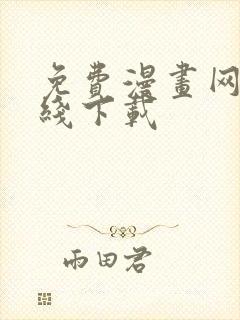 免費漫畫网
綫下載
雨田君